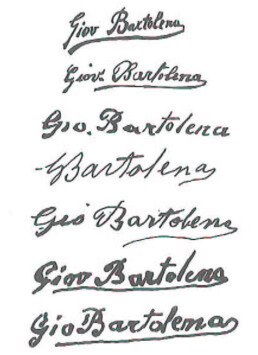 Giov Bartolena
Giov. Bartolena
Gio. Bartolena
Bartolena
Gio Bartolena
Giov Bartolena
Gio Bartolena